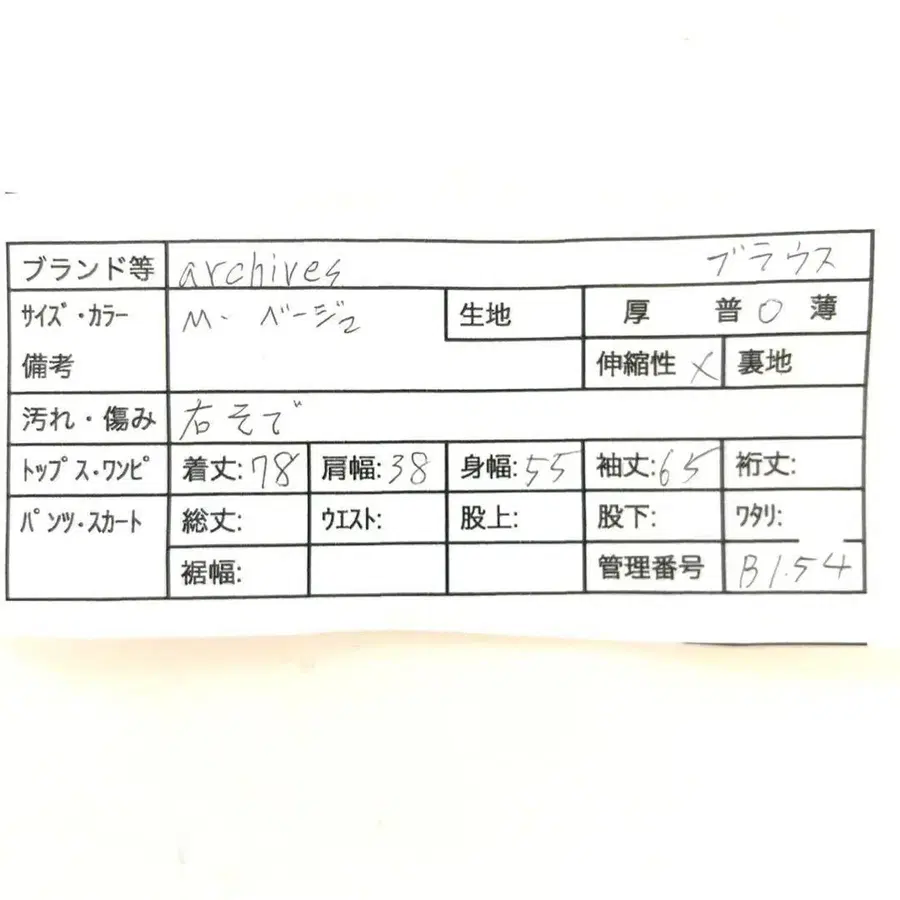 ブランド等 archives ブラウス
サイズ・カラー M. ベージュ 生地 厚 普 〇 薄
備考 伸縮性 × 裏地
汚れ・傷み 右そで
トップス・ワンピ 着丈:78 肩幅:38 身幅:55 袖丈:65 裄丈:
パンツ・スカート 総丈: ウエスト: 股上: 股下: ワタリ:
裾幅: 管理番号 B1.54